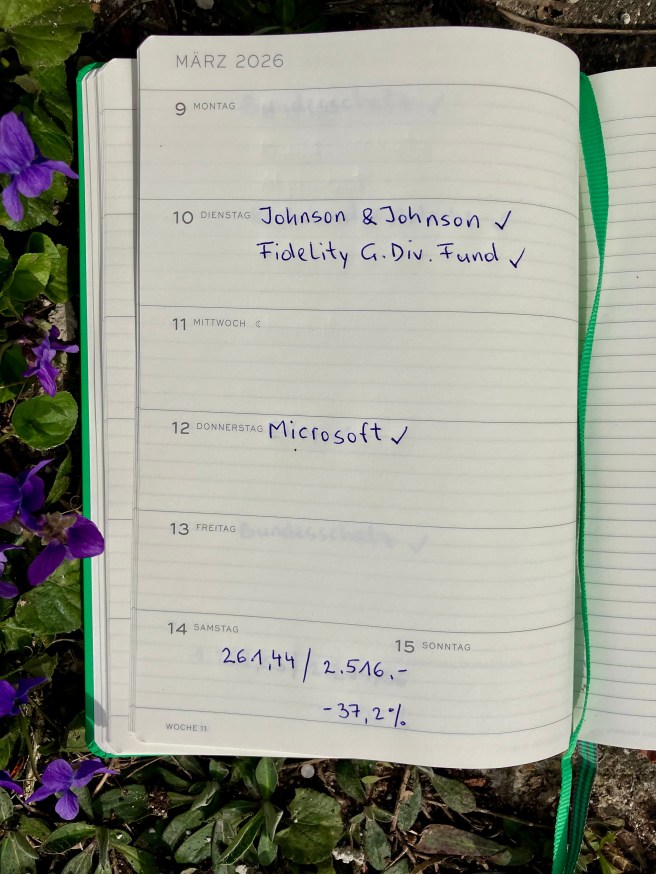 MÄRZ 2026
9 MONTAG
10 DIENSTAG Johnson & Johnson ✓
Fidelity G. Div. Fund ✓
11 MITTWOCH ☾
12 DONNERSTAG Microsoft ✓
13 FREITAG Bundesschatz ✓
14 SAMSTAG
15 SONNTAG
261,44 / 2.516.-
-37,2%
WOCHE 11